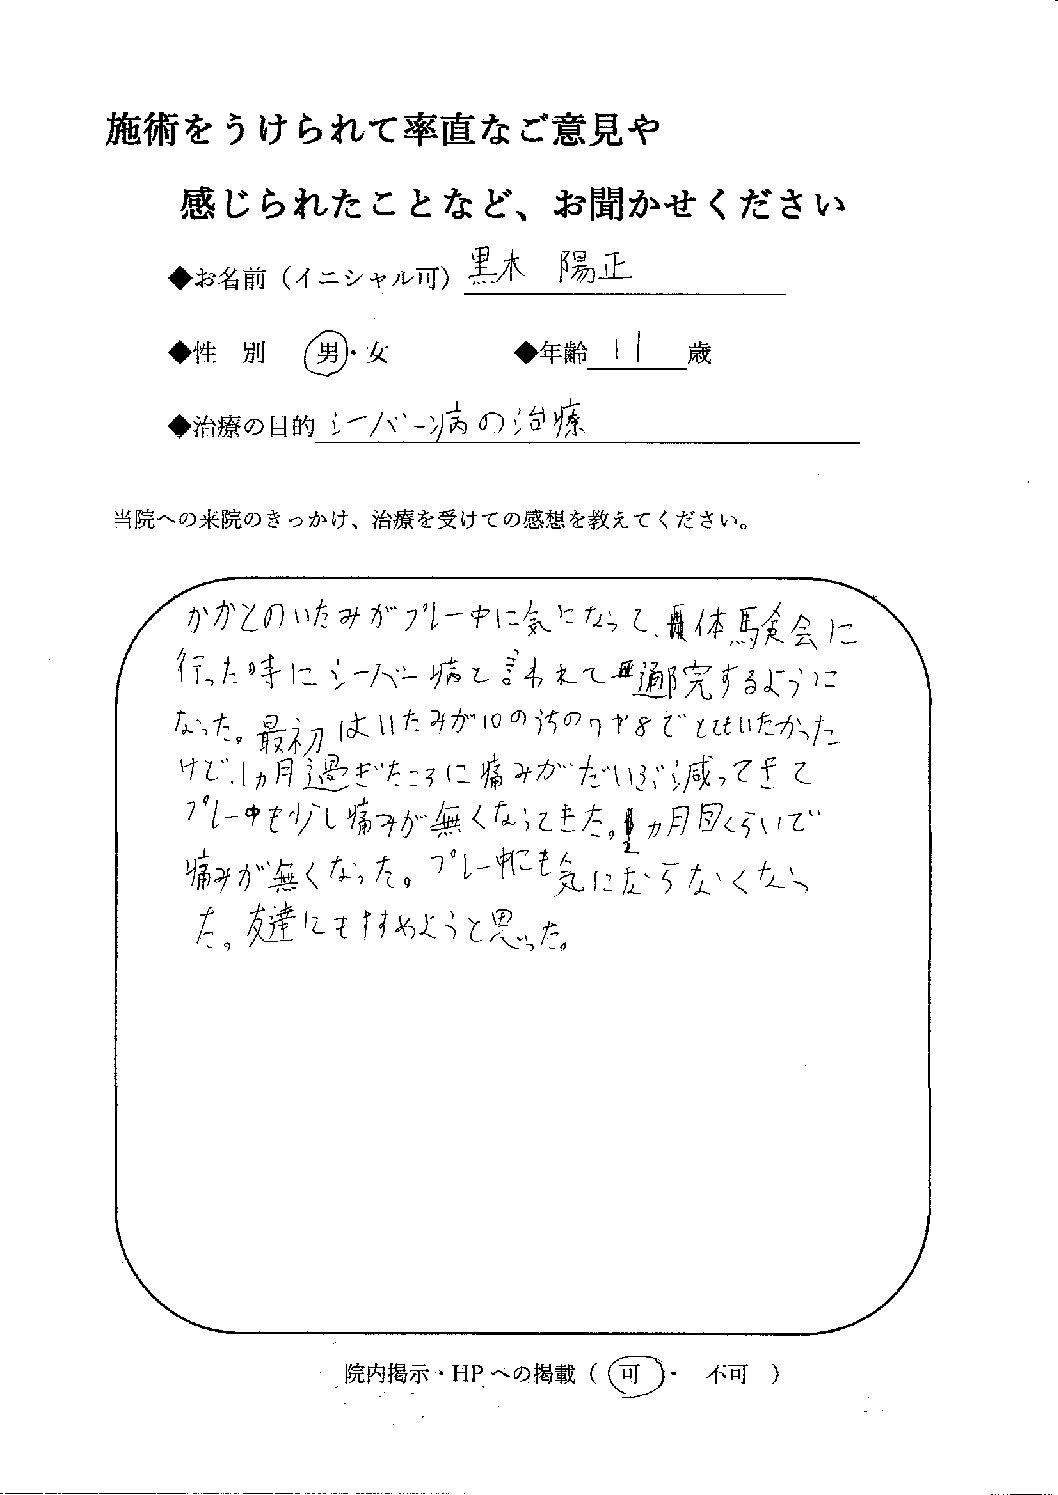 施術をうけられて率直なご意見や
感じられたことなど、お聞かせください
◆お名前（イニシャル可）黒木 陽正
◆性 別 男・女 ◆年齢 11 歳
◆治療の目的 シーバー病の治療
当院への来院のきっかけ、治療を受けての感想を教えてください。
かかとのいたみがプレー中に気になって、体験会に
行った時にシーバー病と言われて通院するように
なった。最初はいたみが10のうちの7や8でとてもいたかった
けど、1ヵ月過ぎたころに痛みがだいぶ減ってきて
プレー中も少し痛みが無くなってきた。2ヵ月目くらいで
痛みが無くなった。プレー中にも気にならなくなっ
た。友達にもすすめようと思った。
院内掲示・HPへの掲載（ 可 ・ 不可 ）